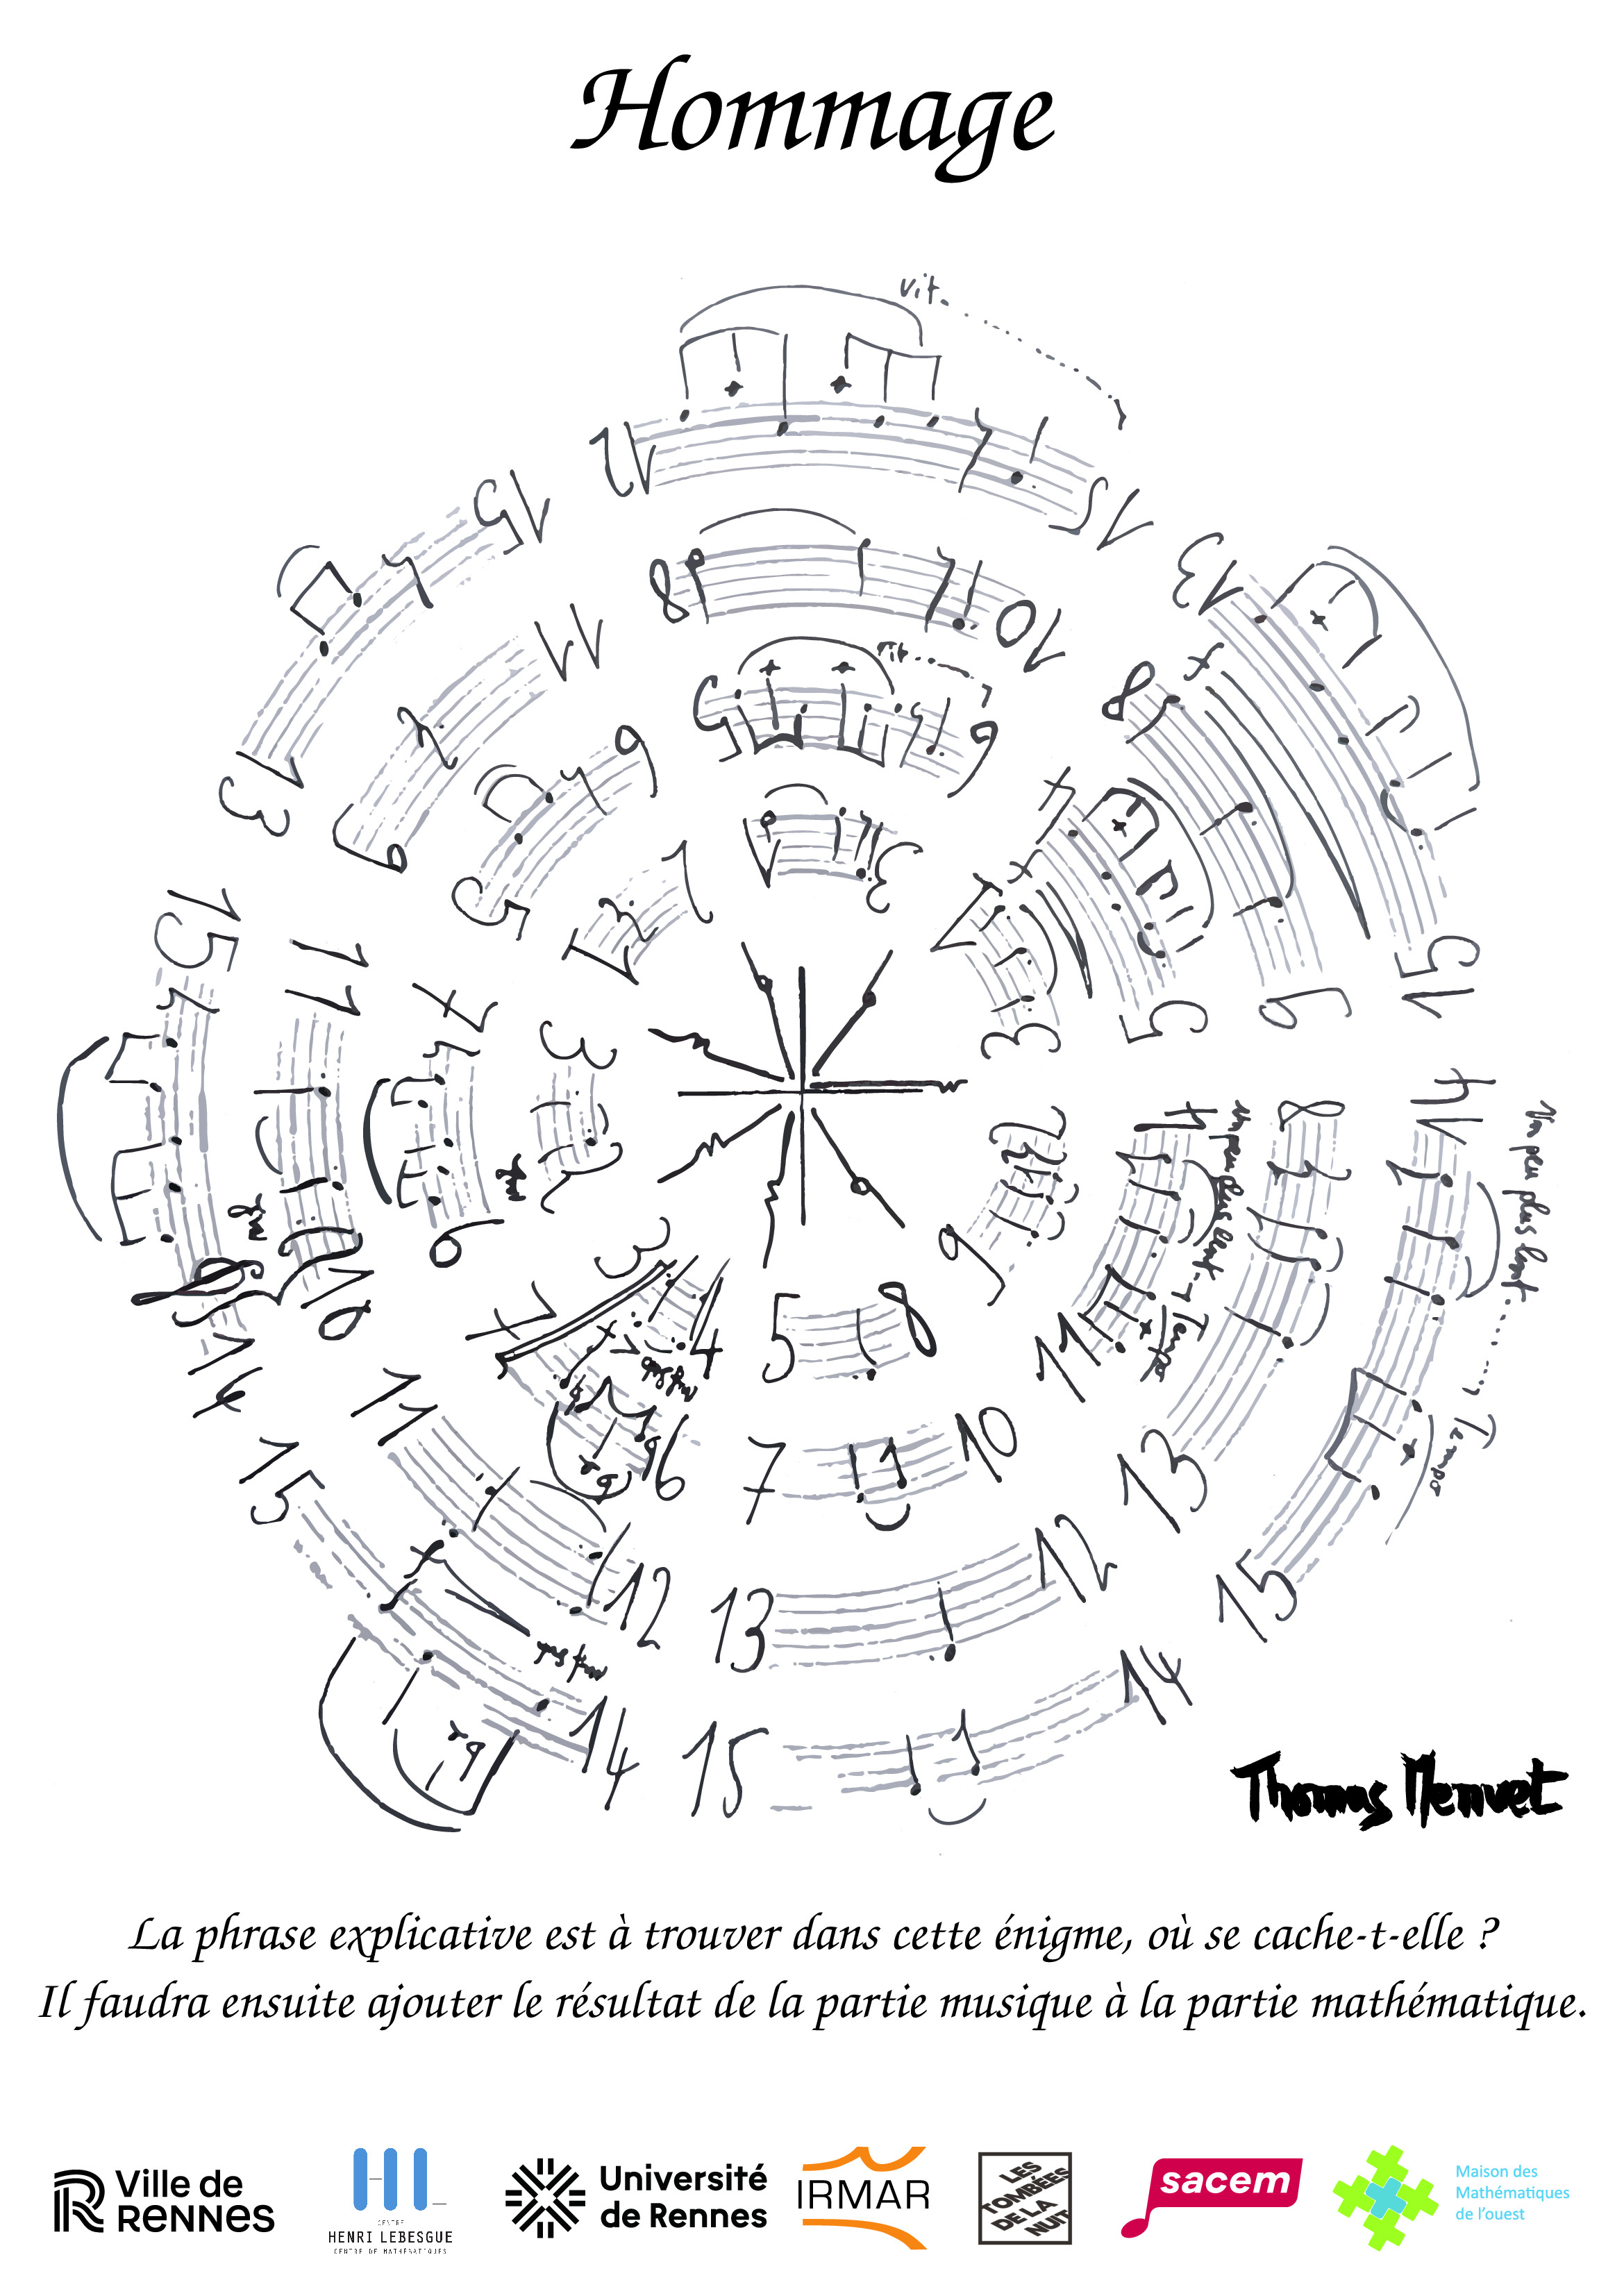 Hommage
vit.
12
15
15
13
8
10
11
8
5
6
6
9
13
5
1
2
3
4
1
15
11
7
3
3
5
6
15
14
8
4
2
un peu plus lent
un peu plus lent
Tempo
Tempo
6
10
14
3
4
5
8
9
11
7
6
7
10
11
12
13
12
13
15
15
14
15
14
Thomas Menuet
La phrase explicative est à trouver dans cette énigme, où se cache-t-elle ?
Il faudra ensuite ajouter le résultat de la partie musique à la partie mathématique.
Ville de
RENNES
CENTRE
HENRI LEBESGUE
CENTRE DE MATHÉMATIQUES
Université
de Rennes
IRMAR
LES
TOMBÉES
DE LA
NUIT
sacem
Maison des
Mathématiques
de l'ouest